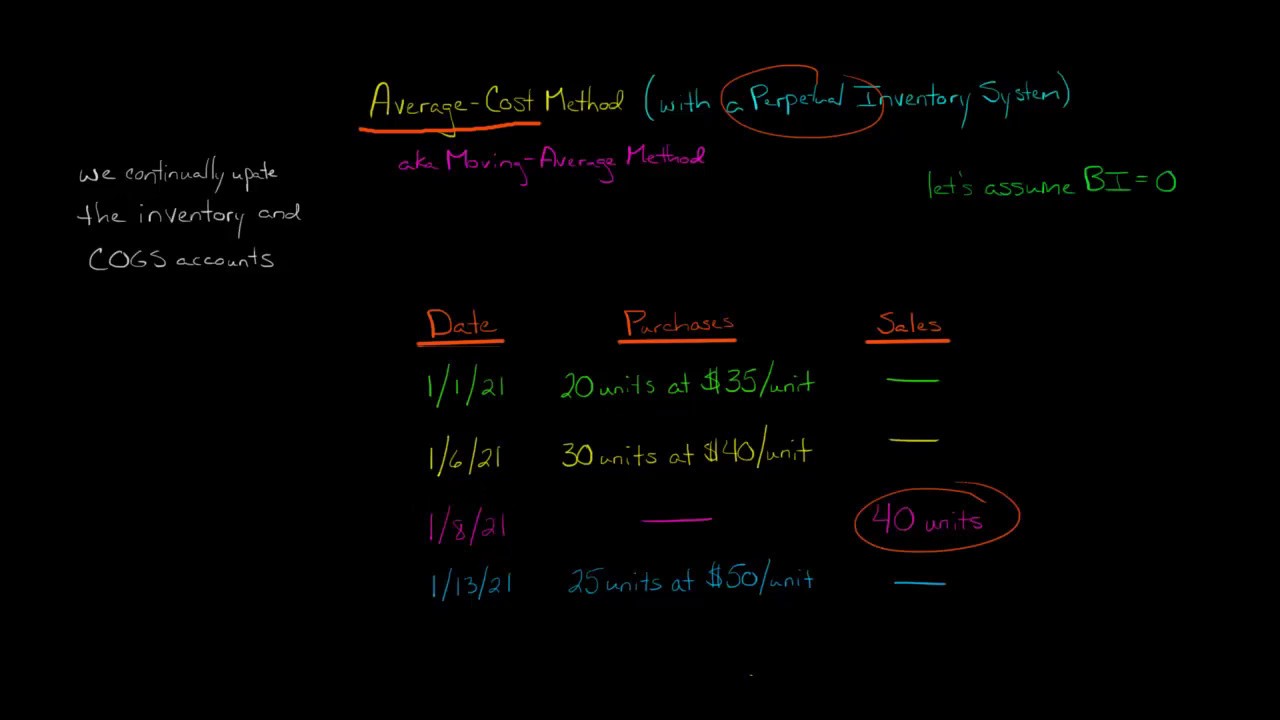 Average-Cost Method (with a Perpetual Inventory System)
aka Moving-Average Method
we continually upate
the inventory and
COGS accounts
let's assume BI=0
Date Purchases Sales
1/1/21 20 units at $35/unit —
1/6/21 30 units at $40/unit —
1/8/21 — 40 units
1/13/21 25 units at $50/unit —